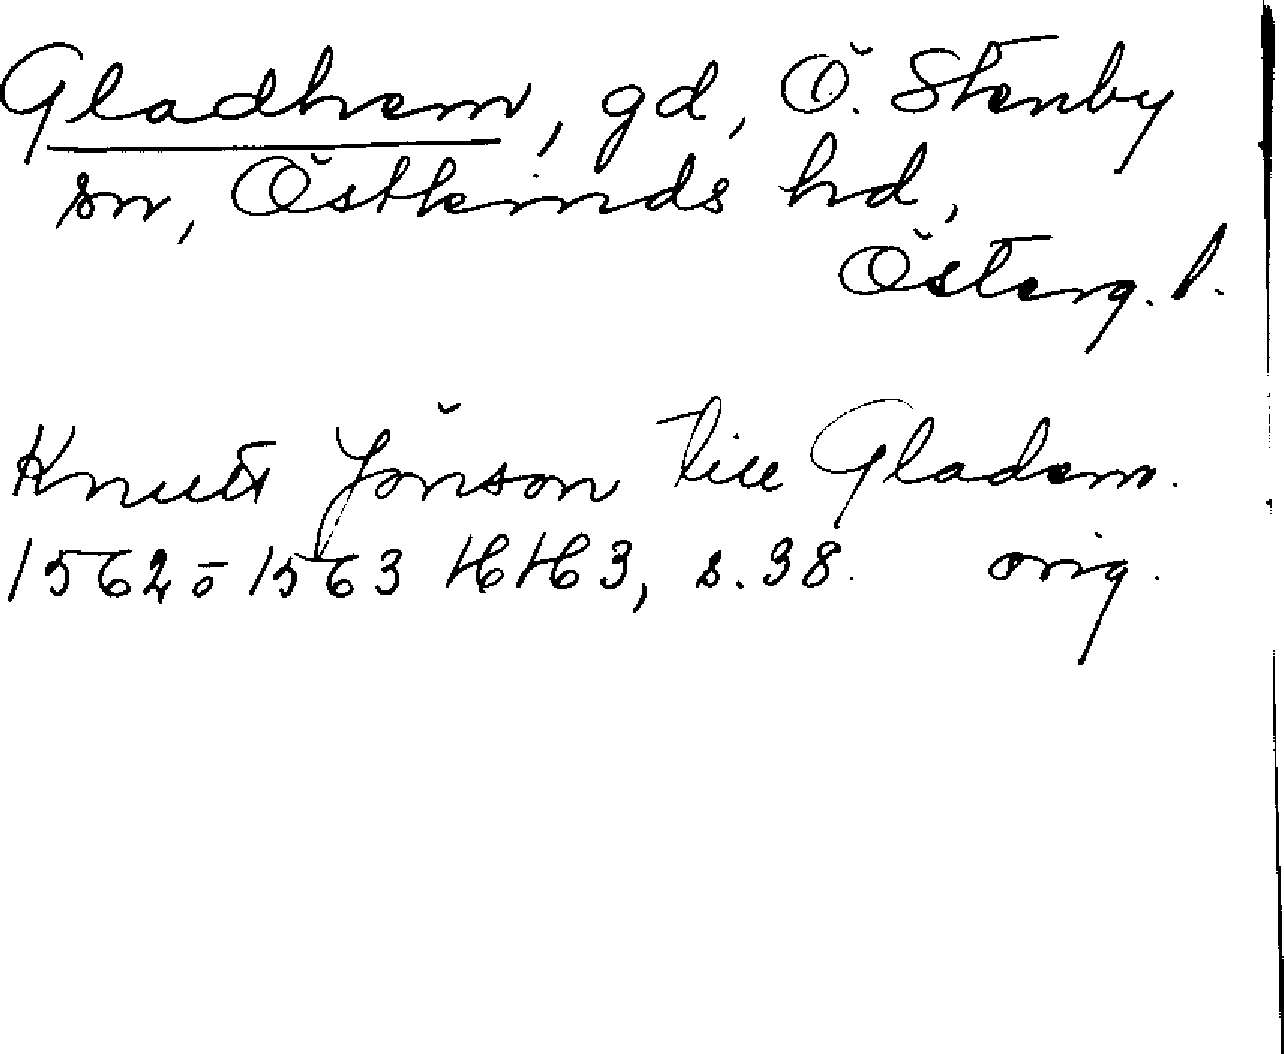 Gladhem, gd, Ö. Stenby
sn, Östkinds hd,
Österg. l.
Knutt Jönson till Gladem.
1562 ō 1563 HH 3, s. 38. orig.